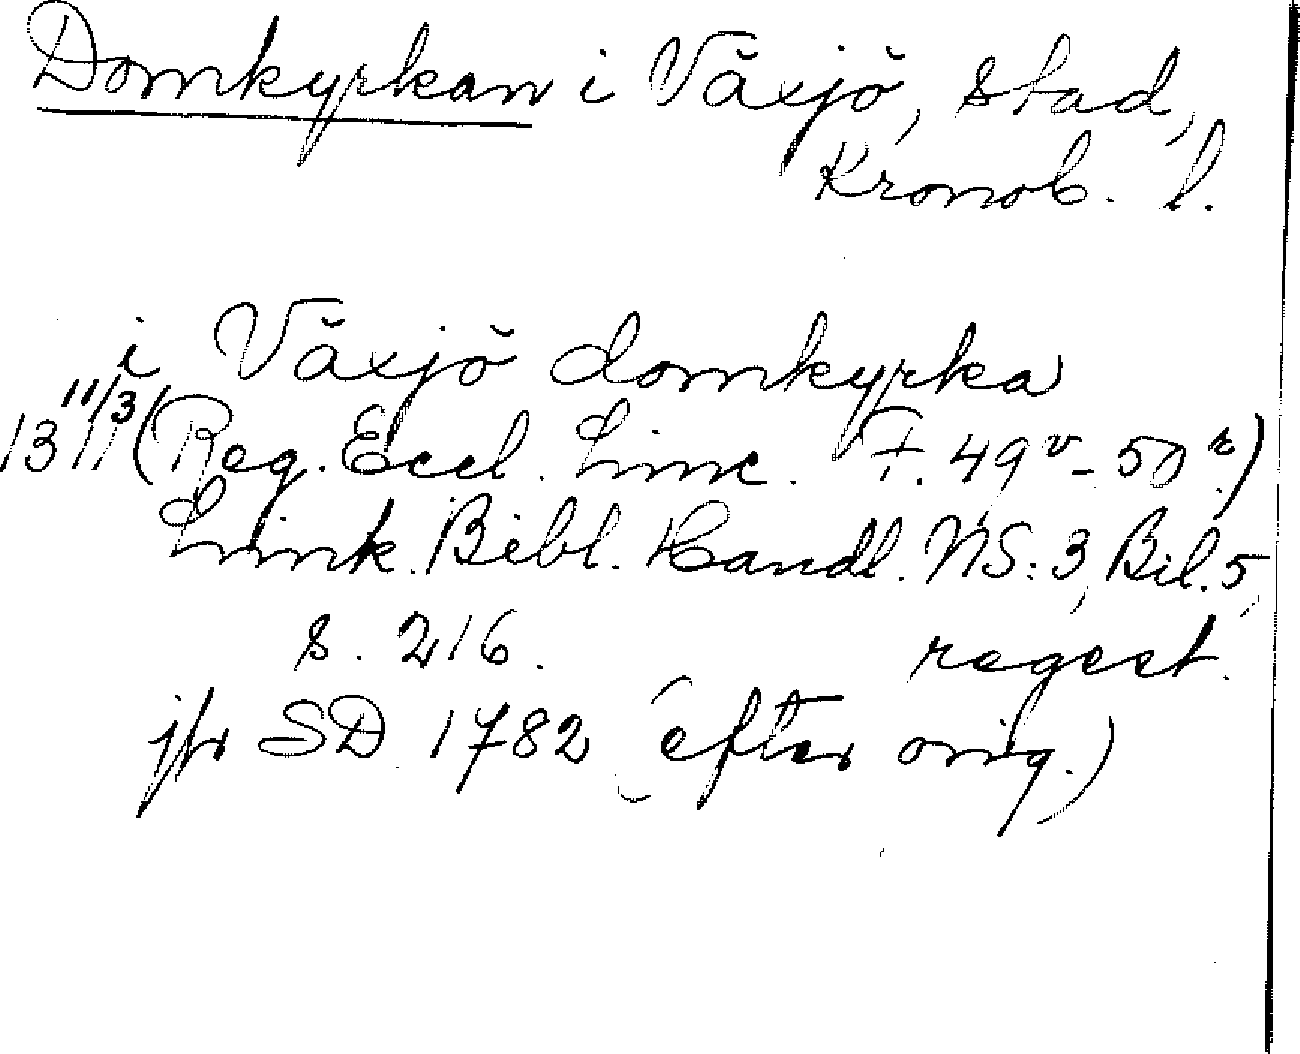 Domkyrkan i Växjö, stad,
Kronob. l.
i Växjö domkyrka
11/3
1311 (Reg. Eccl. Linc. F. 49v - 50r.)
Link. Bibl. Handl. NS: 3, Bil. 5,
s. 216. regest.
jfr SD 1782 (efter orig.)